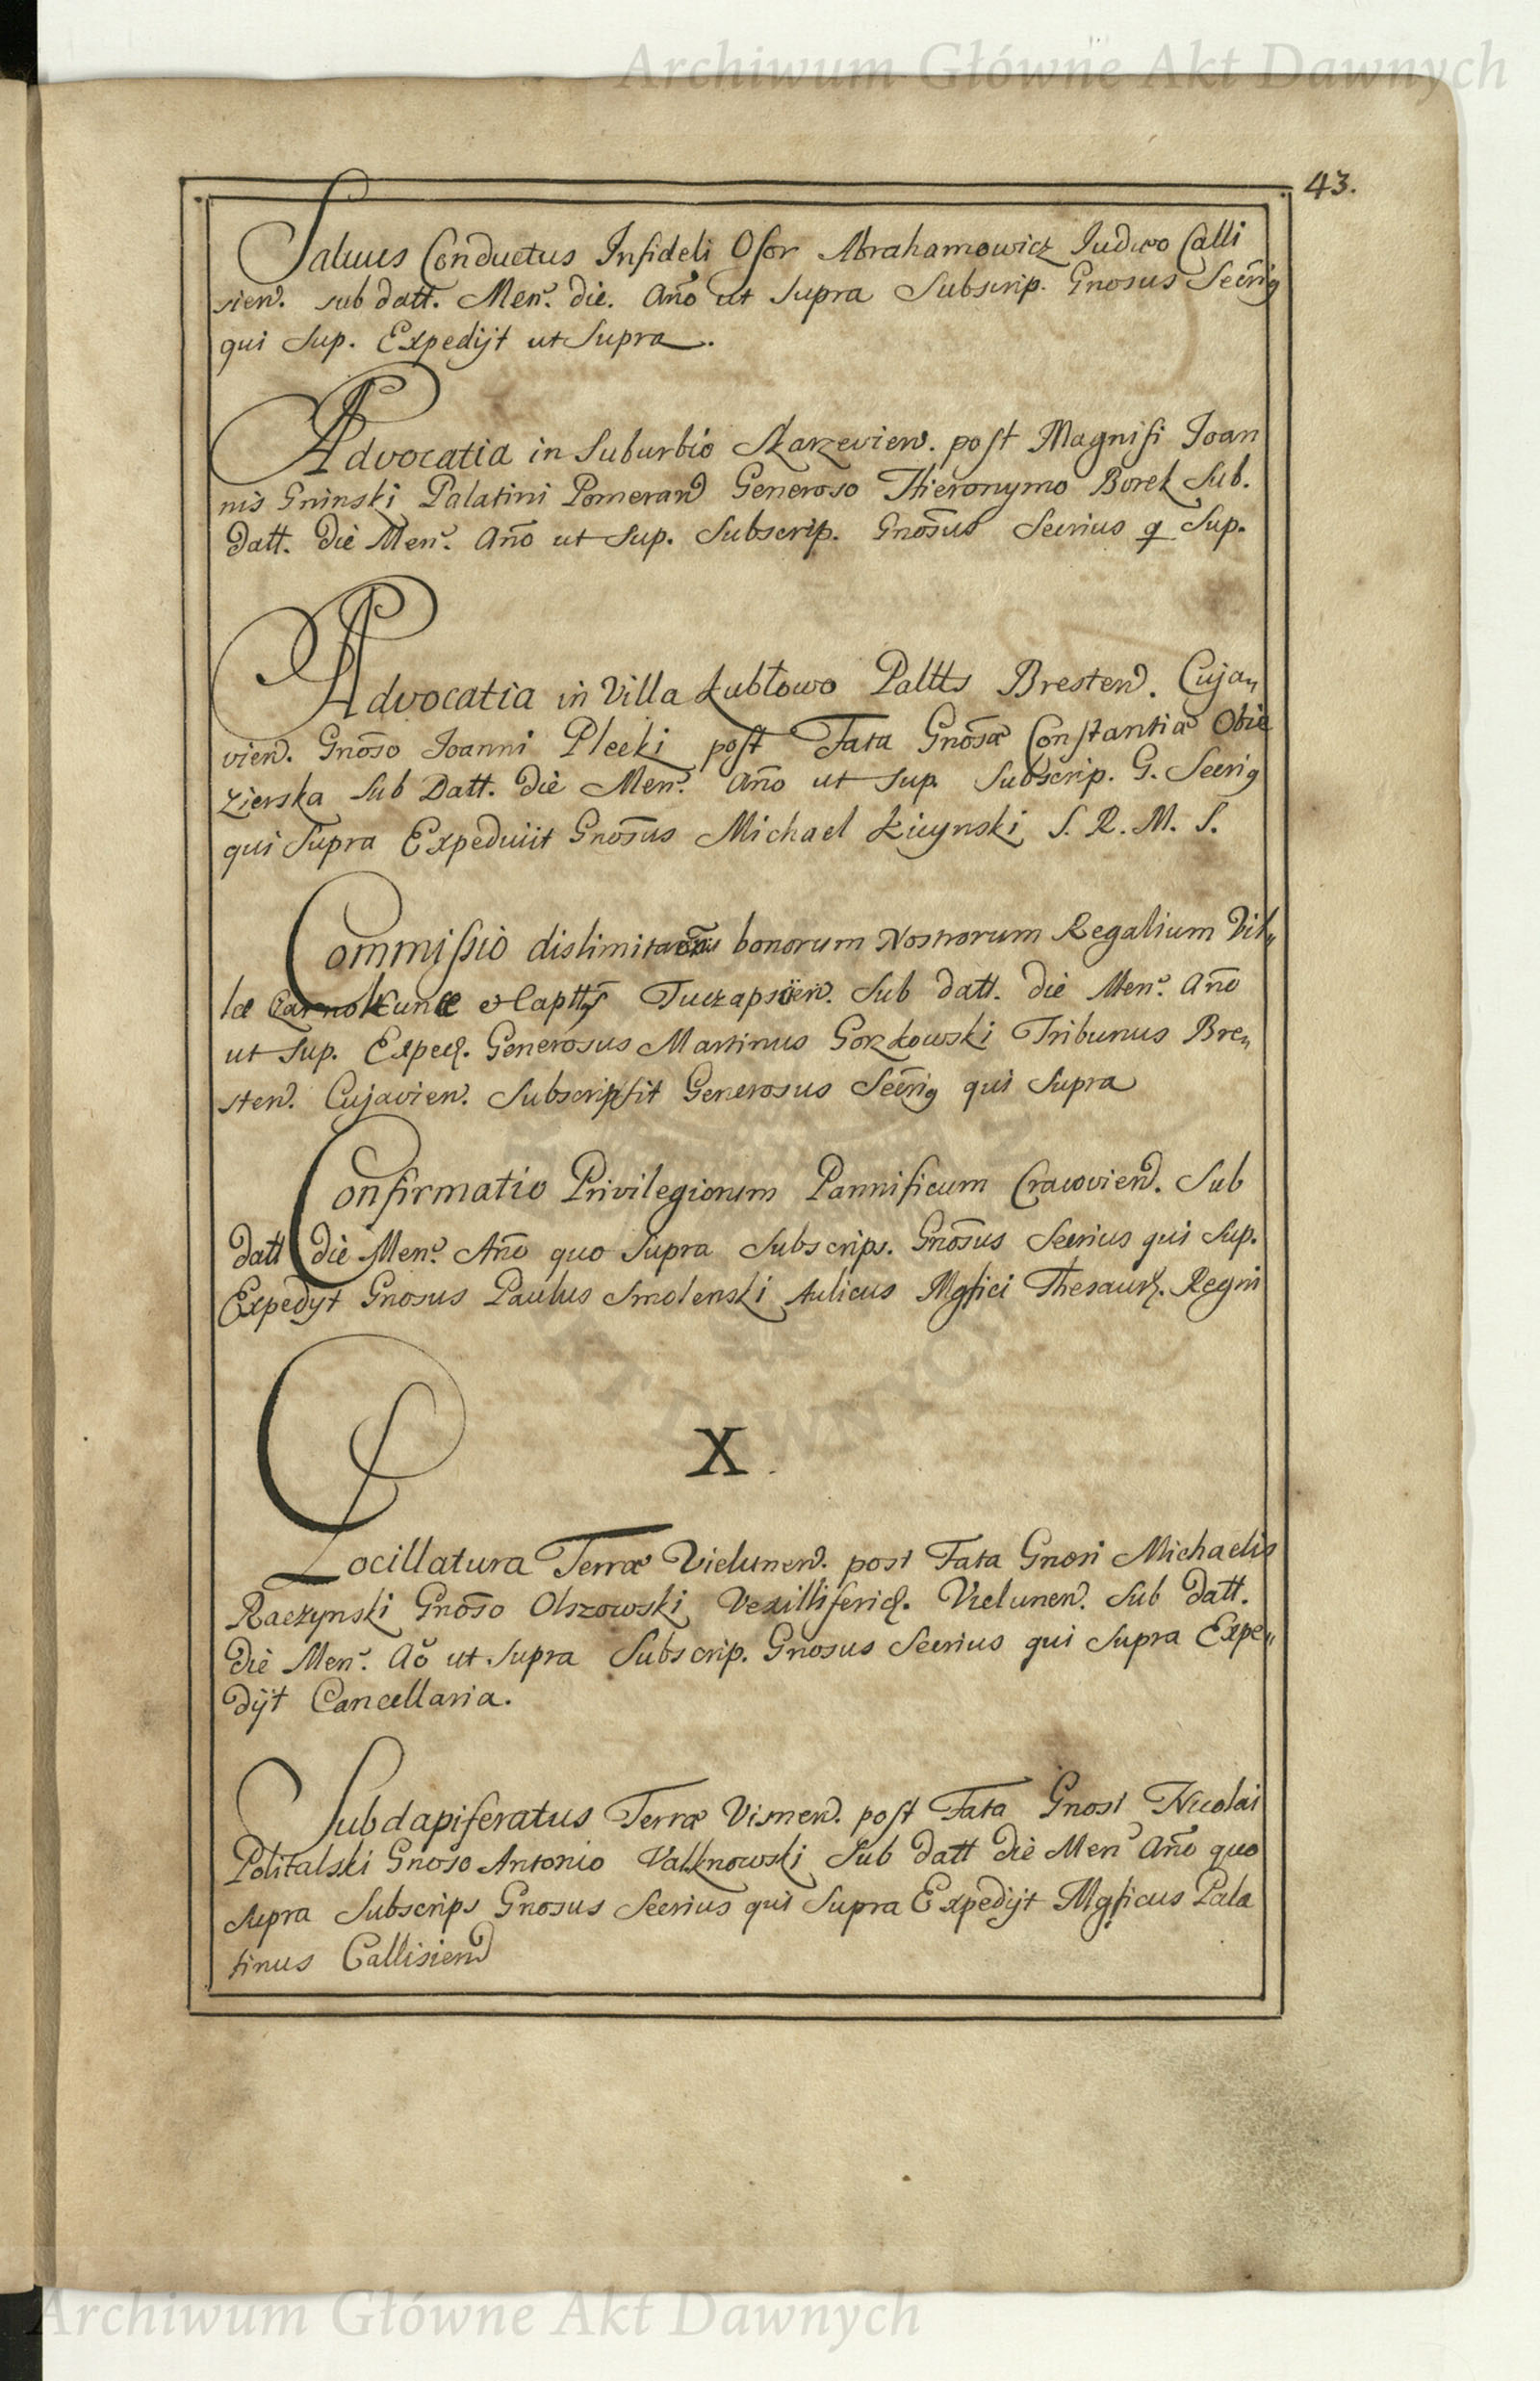 Archiwum Główne Akt Dawnych
43.
Salvus Conductus Infideli Osor Abrahamowicz Judæo Calli
sien. sub datt. Men. die. Año ut Supra Subscrip. Gnosus Secriq
qui Sup. Expedijt ut Supra.
Advocatia in Suburbio Skarzevien. post Magnifi Joan
nis Gninski Palatini Pomeran Generoso Hieronymo Borek Sub.
datt. die Men. Año ut Sup. Subscrip. Gnosus Secrius q Sup.
Advocatia in Villa Łubłowo Paltts Bresten. Cuja„
vien. Gnoso Joanni Plecki post Fata Gnosæ Constantiæ Obie
zierska Sub Datt. die Men. Año ut Sup. Subscrip. G. Secriq
qui Supra Expediuit Gnosus Michael Łicynski S. R. M. S.
Commissio dislimitaõnis bonorum Nostrorum Regalium Vil„
læ Czarnokunce et Captts Tuczapsien. Sub datt. die Men. Año
ut Sup. Exped. Generosus Martinus Gorzkowski Tribunus Bre„
sten. Cujavien. Subscripsit Generosus Secriq qui Supra
Confirmatio Privilegiorum Pannificum Cracovien. Sub
datt die Men. Año quo Supra Subscrips. Gnosus Secrius qui Sup.
Expedijt Gnosus Paulus Smolenski Aulicus Mgfici Thesaur. Regni
X.
Pocillatura Terræ Vielunen. post Fata Gnosi Michaelis
Raczynski Gnoso Olszowski Vexilliferid. Vielunen. Sub datt.
die Men. Aõ ut Supra Subscrip. Gnosus Secrius qui Supra Expe„
dijt Cancellaria.
Subdapiferatus Terræ Vismen. post Fata Gnosi Nicolai
Politalski Gnoso Antonio Valknowski Sub datt die Men Año quo
Supra Subscrips Gnosus Secrius qui Supra Expedijt Mgficus Pala
tinus Callisien
Archiwum Główne Akt Dawnych